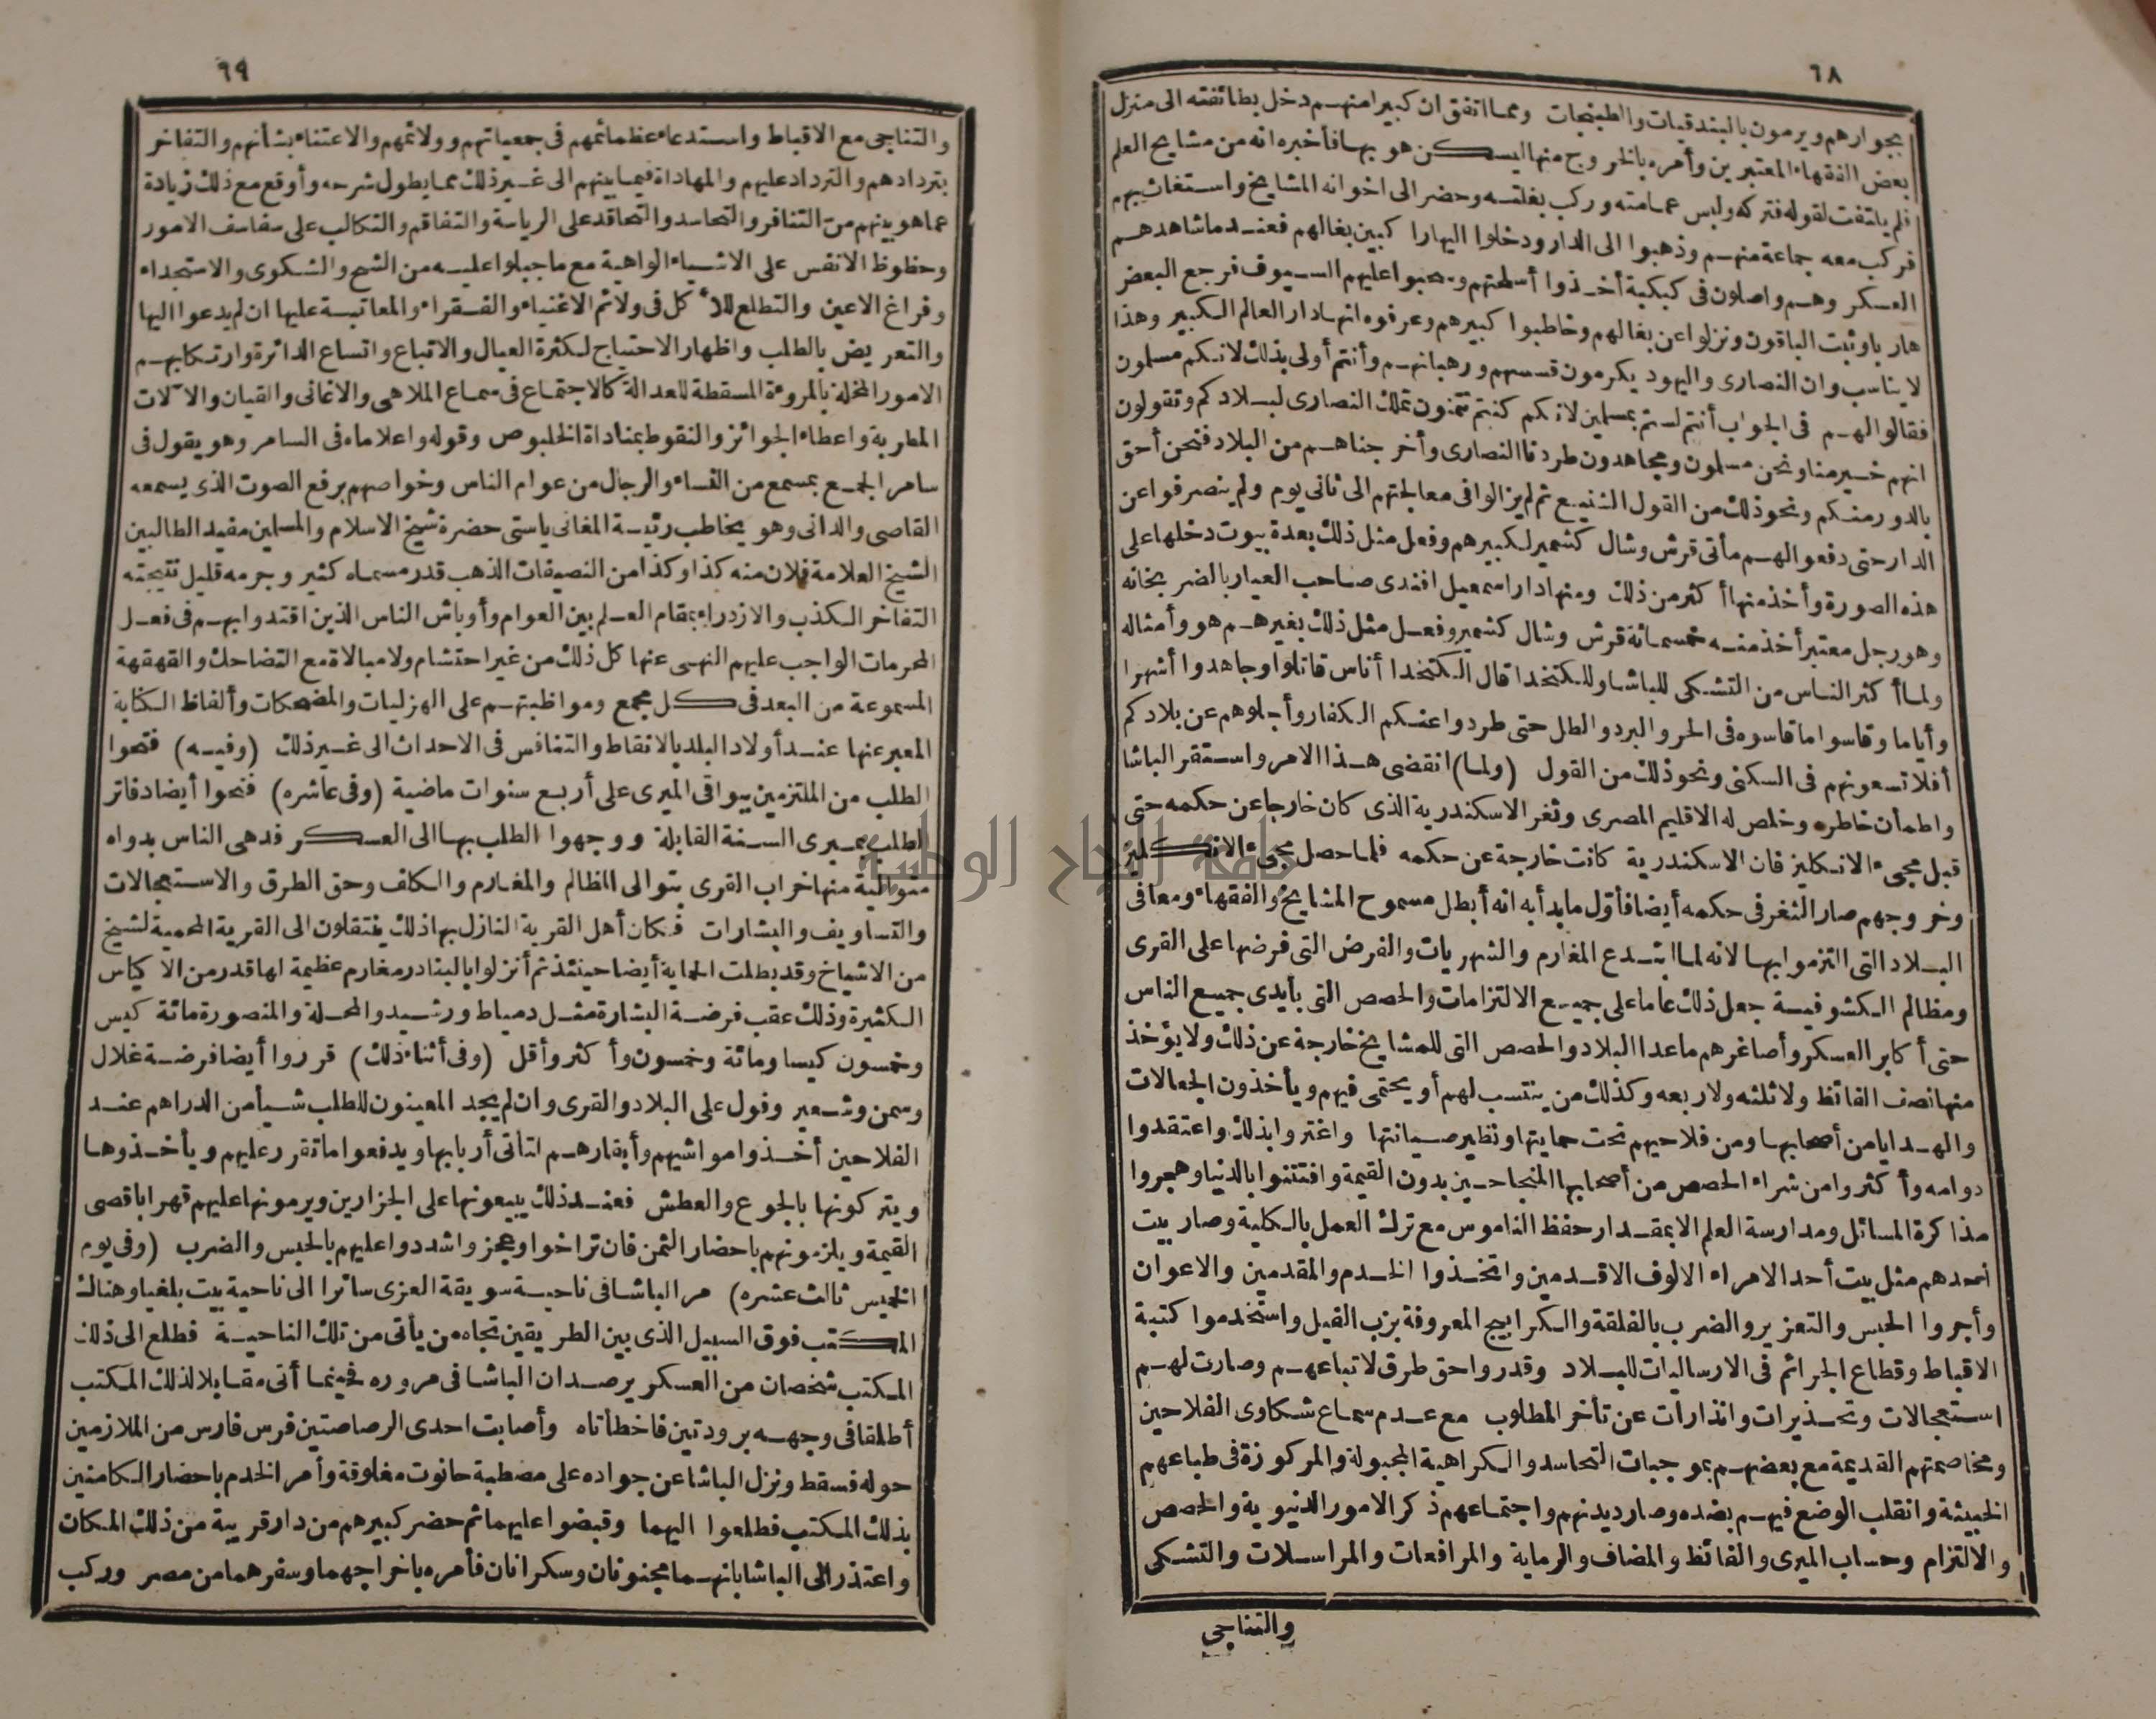 ٦٨
بجوارهم ويرمون بالبندقيات والطبنجات ومما اتفق ان كبيرا منهم دخل بطائفته الى منزل
بعض الفقهاء المعتبرين وأمره بالخروج منها ليسكن هو بها فأخبره انه من مشايخ العلم
فلم يلتفت لقوله فتركه ولبس عمامته وركب بغلته وحضر الى اخوانه المشايخ واستغاث بهم
فركب معه جماعة منهم وذهبوا الى الدار ودخلوا اليها راكبين بغالهم فعندما شاهدهم
العسكر وهم واصلون فى كبكبة أخذوا أسلحتهم وسحبوا عليهم السيوف فرجع البعض
هاربا وثبت الباقون ونزلوا عن بغالهم وخاطبوا كبيرهم وعرفوه انها دار العالم الكبير وهذا
لا يناسب وان النصارى واليهود يكرمون قسسهم ورهبانهم وأنتم أولى بذلك لانكم مسلمون
فقالوا لهم فى الجواب أنتم لستم بمسلمين لانكم كنتم تتمنون تملك النصارى لبلادكم وتقولون
انهم خير منا ونحن مسلمون ومجاهدون طردنا النصارى وأخرجناهم من البلاد فنحن أحق
بالدور منكم ونحو ذلك من القول الشنيع ثم لم يزالوا فى معالجتهم الى ثانى يوم ولم ينصرفوا عن
الدار حتى دفعوا لهم مأتى قرش وشال كشمير لكبيرهم وفعل مثل ذلك بعدة بيوت دخلها على
هذه الصورة وأخذ منها أكثر من ذلك ومنها دار اسمعيل افندى صاحب العيار بالضربخانه
وهو رجل معتبر أخذ منه خمسمائة قرش وشال كشمير وفعل مثل ذلك بغيرهم هو وأمثاله
ولما أكثر الناس من التشكى للباشا وللكتخدا قال الكتخدا أناس قاتلوا وجاهدوا أشهرا
وأياما وقاسوا ما قاسوه فى الحر والبرد والطل حتى طردوا عنكم الكفار وأجلوهم عن بلادكم
أفلا تسعونهم فى السكنى ونحو ذلك من القول (ولما) انقضى هذا الامر واستقر الباشا
واطمأن خاطره وخلص له الاقليم المصرى وثغر الاسكندرية الذى كان خارجا عن حكمه حتى
قبل مجىء الانكليز فان الاسكندرية كانت خارجة عن حكمه فلما حصل مجىء الانكليز
وخروجهم صار الثغر فى حكمه أيضا فأول ما بدأ به انه أبطل مسموح المشايخ والفقهاء ومعافى
البلاد التى التزموا بها لانه لما ابتدع المغارم والشهريات والفرض التى فرضها على القرى
ومظالم الكشوفية جعل ذلك عاما على جميع الالتزامات والحصص التى بأيدى جميع الناس
حتى أكابر العسكر وأصاغرهم ما عدا البلاد والحصص التى للمشايخ خارجة عن ذلك ولا يؤخذ
منها نصف الفائظ ولا ثلثه ولا ربعه وكذلك من ينتسب لهم أو يحتمى فيهم ويأخذون الجعالات
والهدايا من أصحابها ومن فلاحيهم تحت حمايتها ونظير صيانتها واغتروا بذلك واعتقدوا
دوامه وأكثروا من شراء الحصص من أصحابها المحتاجين بدون القيمة وافتتنوا بالدنيا وهجروا
مذاكرة المسائل ومدارسة العلم الا بمقدار حفظ الناموس مع ترك العمل بالكلية وصار بيت
أحدهم مثل بيت أحد الامراء الالوف الاقدمين واتخذوا الخدم والمقدمين والاعوان
وأجروا الحبس والتعزير والضرب بالفلقة والكرابيج المعروفة بزب الفيل واستخدموا كتبة
الاقباط وقطاع الجرائم فى الارساليات للبلاد وقدروا حق طرق لاتباعهم وصارت لهم
استعجالات وتحذيرات وانذارات عن تأخر المطلوب مع عدم سماع شكاوى الفلاحين
ومخاصمتهم القديمة مع بعضهم بموجبات التحاسد والكراهية المجبولة والمركوزة فى طباعهم
الخبيثة وانقلب الوضع فيهم بضده وصار ديدنهم واجتماعهم ذكر الامور الدنيوية والحصص
والالتزام وحساب الميرى والفائظ والمضاف والرماية والمرافعات والمراسلات والتشكى
والتناجى
٦٩
والتناجى مع الاقباط واستدعاء عظمائهم فى جمعياتهم وولائمهم والاعتناء بشأنهم والتفاخر
بتردادهم والترداد عليهم والمهاداة فيما بينهم الى غير ذلك مما يطول شرحه وأوقع مع ذلك زيادة
عما هو بينهم من التنافر والتحاسد والتحاقد على الرياسة والتفاقم والتكالب على سفاسف الامور
وحظوظ الانفس على الاشياء الواهية مع ما جبلوا عليه من الشح والشكوى والاستجداء
وفراغ الاعين والتطلع للأكل فى ولائم الاغنياء والفقراء والمعاتبة عليها ان لم يدعوا اليها
والتعريض بالطلب واظهار الاحتياج لكثرة العيال والاتباع واتساع الدائرة وارتكابهم
الامور المخلة بالمروءة المسقطة للعدالة كالاجتماع فى سماع الملاهى والاغانى والقيان والآلات
المطربة واعطاء الجوائز والنقوط بمناداة الخلبوص وقوله واعلاماه فى السامر وهو يقول فى
سامر الجمع بمسمع من النساء والرجال من عوام الناس وخواصهم برفع الصوت الذى يسمعه
القاصى والدانى وهو يخاطب رئيسة المغانى ياستى حضرة شيخ الاسلام والمسلمين مفيد الطالبين
الشيخ العلامة فلان منه كذا وكذا من النصيفات الذهب قدر مسماه كثير وجرمه قليل نتيجته
التفاخر الكذب والازدراء بمقام العلم بين العوام وأوباش الناس الذين اقتدوا بهم فى فعل
المحرمات الواجب عليهم النهى عنها كل ذلك من غير احتشام ولا مبالاة مع التضاحك والقهقهة
المسموعة من البعد فى كل مجمع ومواظبتهم على الهزليات والمضحكات وألفاظ الكناية
المعبر عنها عند أولاد البلد بالانقاط والتنافس فى الاحداث الى غير ذلك (وفيه) فتحوا
الطلب من الملتزمين ببواقى الميرى على أربع سنوات ماضية (وفى عاشره) فتحوا أيضا دفاتر
الطلب بميرى السنة القابلة ووجهوا الطلب بها الى العسكر فدهى الناس بدواه
متوالية منها خراب القرى بتوالى المظالم والمغارم والكلف وحق الطرق والاستعجالات
والتساويف والبشارات فكان أهل القرية النازل بها ذلك ينتقلون الى القرية المحمية لشيخ
من الاشياخ وقد بطلت الحماية أيضا حينئذ ثم أنزلوا بالبنادر مغارم عظيمة لها قدر من الاكياس
الكثيرة وذلك عقب فرضة البشارة مثل دمياط ورشيد والمحلة والمنصورة مائة كيس
وخمسون كيسا ومائة وخمسون وأكثر وأقل (وفى أثناء ذلك) قرروا أيضا فرضة غلال
وسمن وشعير وفول على البلاد والقرى وان لم يجد المعينون للطلب شيأ من الدراهم عند
الفلاحين أخذوا مواشيهم وأبقارهم لتأتى أربابها ويدفعوا ما تقرر عليهم ويأخذوها
ويتركونها بالجوع والعطش فعند ذلك يبيعونها على الجزارين ويرمونها عليهم قهرا باقصى
القيمة ويلزمونهم باحضار الثمن فان تراخوا وعجزوا شددوا عليهم بالحبس والضرب (وفى يوم
الخميس ثالث عشره) مر الباشا فى ناحية سويقة العزى سائرا الى ناحية بيت بلغيا وهناك
المكتب فوق السبيل الذى بين الطريقين تجاه من يأتى من تلك الناحية فطلع الى ذلك
المكتب شخصان من العسكر يرصدان الباشا فى مروره فحينما أتى مقابلا لذلك المكتب
أطلقا فى وجهه برودتين فاخطأتاه وأصابت احدى الرصاصتين فرس فارس من الملازمين
حوله فسقط ونزل الباشا عن جواده على مصطبة حانوت مغلوقة وأمر الخدم باحضار الكامنين
بذلك المكتب فطلعوا اليهما وقبضوا عليهما ثم حضر كبيرهم من دار قريبة من ذلك المكان
واعتذر الى الباشا بانهما مجنونان وسكرانان فأمره باخراجهما وسفرهما من مصر وركب
جامعة النجاح الوطنية